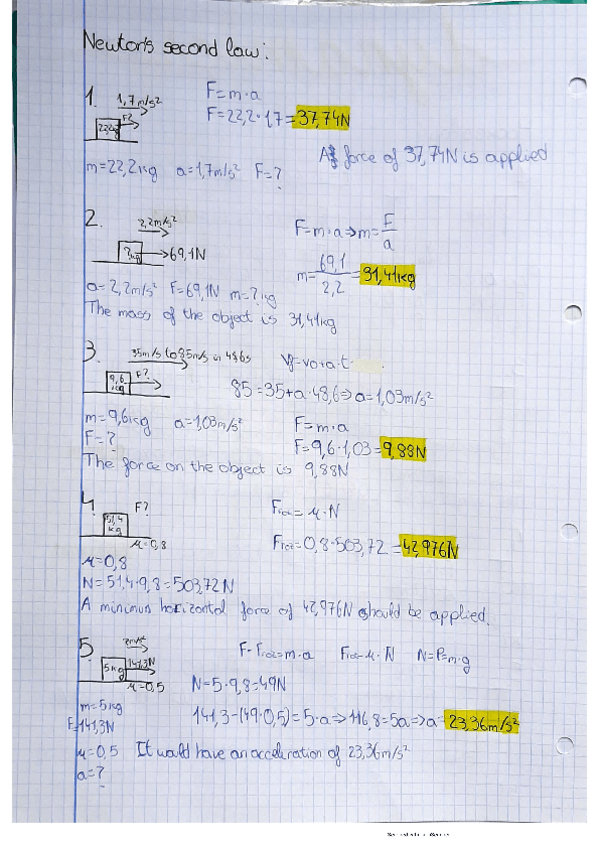 Newton's second law:
1.
1,7 m/s²
F?
22,2kg
F=m·a
F=22,2·1,7=37,74N
m=22,2kg a=1,7m/s² F=?
A force of 37,74N is applied
2.
2,2m/s²
?kg
69,1N
F=m·a⇒m=F/a
m=69,1/2,2=31,41kg
a=2,2m/s² F=69,1N m=?kg
The mass of the object is 31,41kg
3.
35m/s to 85m/s in 48,6s
F?
9,6 kg
Vf=vo+a·t
85=35+a·48,6⇒a=1,03m/s²
m=9,6kg a=1,03m/s²
F=?
F=m·a
F=9,6·1,03=9,88N
The force on the object is 9,88N
4.
F?
51,4 kg
μ=0,8
Froz=μ·N
Froz=0,8·503,72=42,976N
μ=0,8
N=51,4·9,8=503,72N
A minimun horizontal force of 42,976N should be applied.
5.
2m/s²
5kg
141,3N
μ=0,5
F-Froz=m·a Froz=μ·N N=P=m·g
N=5·9,8=49N
m=5kg
F=141,3N
141,3-(49·0,5)=5·a⇒116,8=5a⇒a=23,36m/s²
μ=0,5
a=?
It would have an acceleration of 23,36m/s²